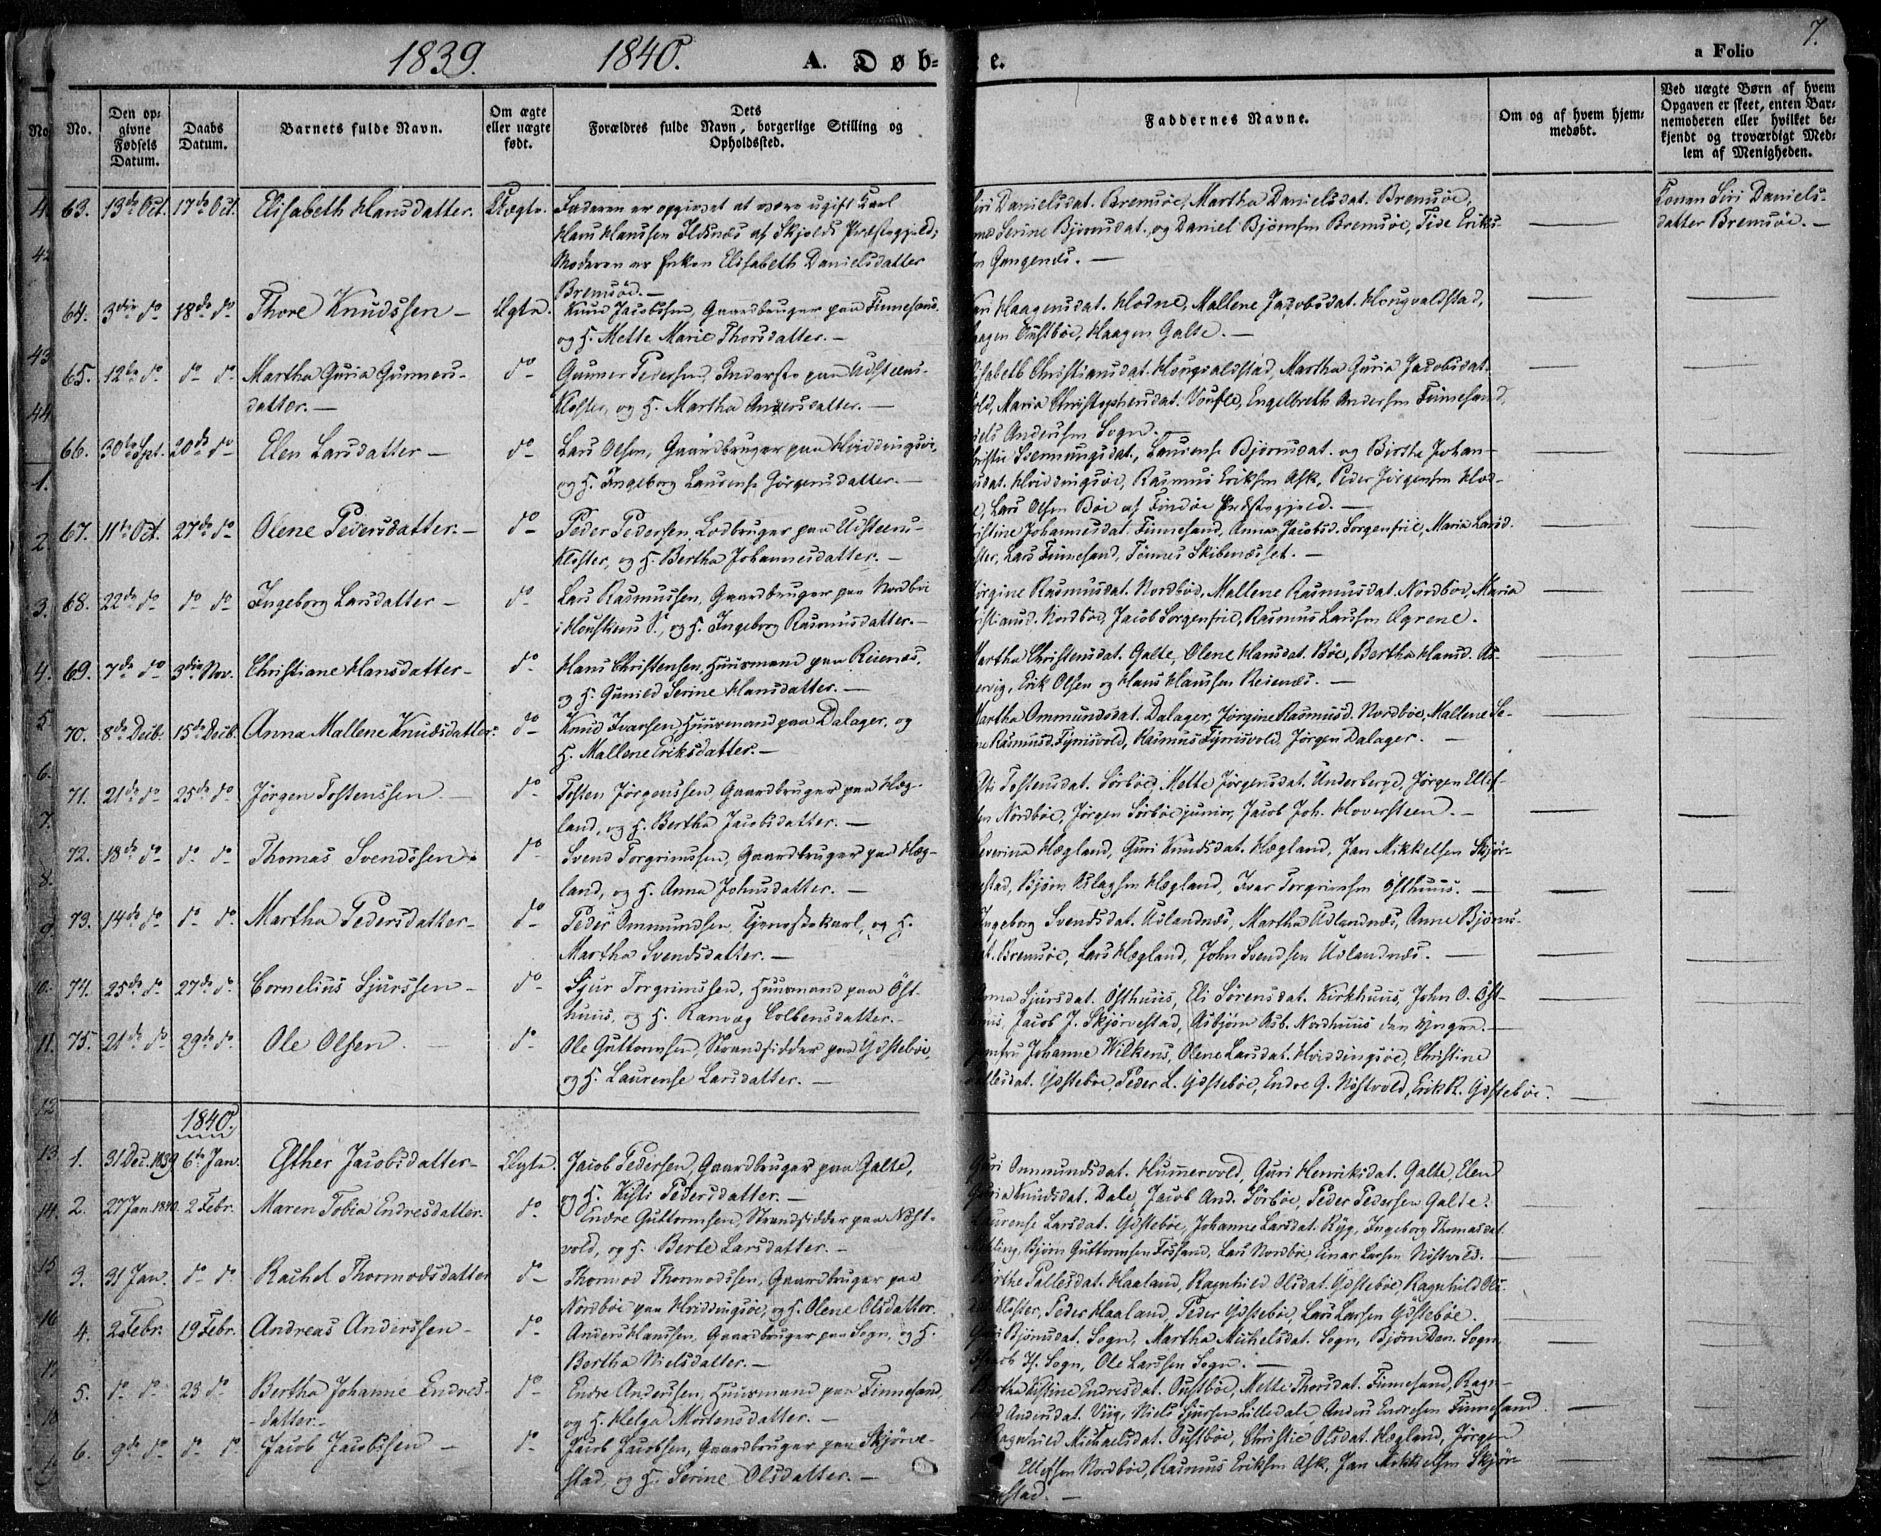 1839. 1840. A. Døb- e. a Folio 7.
No. Den opgivne Fødsels Datum. Daabs Datum. Barnets fulde Navn. Om ægte eller uægte født. Dets Forældres fulde Navn, borgerlige Stilling og Opholdssted. Faddernes Navne. Om og af hvem hjemmedøbt. Ved uægte Børn af hvem Opgaven er skeet, enten Barnemoderen eller hvilket bekjendt og troværdigt Medlem af Menigheden.
63. 13de Oct. 17de Oct. Elisabeth Hansdatter. Uægte. Faderen er opgivet at være ugift Karl
Hans Hanssen Ilsnæs af Skjolds Præstegjeld;
Moderen er Enken Elisabeth Danielsdatter
Bremsöe. —
Siri Danielsdat. Bremsöe, Martha Danielsdat. Bremsöe, Konen Siri Daniels-
Serine Björnsdat. og Daniel Björnsen Bremsöe, datter Bremsöe. —
Gangenæs. —
64. 3die do 18de do Thore Knudssen — Ægte. Knud Jacobssen, Gaardbruger paa Finnesand,
og H. Mette Marie Thorsdatter. —
Haagensdat. Hodne, Mallene Jacobsdat. Hougvaldstad,
Austböe, Haagen Galte. —
65. 12te do do do Martha Guria Gunners- do Gunner Pedersen, Inderste paa Udsteens-
datter. — Kloster, og H. Martha Andersdatter. —
Elisabeth Christiansdat. Hougvaldstad, Martha Guria Jacobsdat.
Maria Christophersdat. Voufle, Engelbreth Andersen Finnesand,
Anderssen Sogn. —
66. 30te Sept. 20de do Elen Larsdatter — do Lars Olsen, Gaardbruger paa Hviddingsöe,
og H. Ingeborg Laurense Jörgensdatter. —
Svennungsdat., Laurense Björnsdat. og Birthe Johan-
Hviddingsöe, Rasmus Eriksen Ask, Peder Jörgensen Hod-
Lars Olsen Böe af Findöe Præstegjeld. —
67. 11te Oct. 27de do Olene Pedersdatter. — do Peder Pedersen, Lodbruger paa Udsteens-
kloster, og H. Bertha Johannesdatter. —
Johannesdat. Finnesand, Anna Jacobsd. Sorgenfrie, Maria Larsd.
Lars Finnesand, Tönnes Skibenæsset. —
68. 22de do do do Ingeborg Larsdatter — do Lars Rasmussen, Gaardbruger paa Nordböe
i Houskens S., og H. Ingeborg Rasmusdatter. —
Jörgine Rasmusdat. Nordböe, Mallene Rasmusdat. Nordböe, Maria
Nordböe, Jacob Sorgenfrie, Rasmus Laursen Ægrene.
69. 7de do 3die Nov. Christiane Hansdatter — do Hans Christensen, Huusmand paa Reienæs,
og H. Gunild Serine Hansdatter. —
Martha Christensdat. Galte, Olene Hansdat. Böe, Bertha Hansd. As-
Erik Olsen og Hans Hanssen Reienæs. —
70. 8de Decb. 15de Decb. Anna Mallene Knudsdatter. do Knud Ivarsen, Huusmand paa Dalager, og
H. Mallene Eriksdatter. —
Martha Ommundsdat. Dalager, Jörgine Rasmusd. Nordböe, Mallene Se-
Rasmusd. Tynisvold, Rasmus Tynisvold, Jörgen Dalager. —
71. 21de do 25de do Jörgen Tostenssen — do Tosten Jörgenssen, Gaardbruger paa Hæg-
land, og H. Bertha Jacobsdatter. —
Tostensdat. Sörböe, Mette Jörgensdat. Underberge, Jörgen Ellef-
Nordböe, Jörgen Sörböe junior, Jacob Joh. Hoversteen. —
72. 18de do do do Thomas Svendssen — do Svend Torgrimssen, Gaardbruger paa Hæg-
land, og H. Anna Johnsdatter. —
Severina Hægland, Guri Knudsdat. Hægland, Jan Mikkelsen Skjör-
Björn Hægland, Ivar Torgrimsen Östhuus. —
73. 14de do do do Martha Pedersdatter — do Peder Ommundsen, Tjenestekarl, og H.
Martha Svendsdatter. —
Ingeborg Svendsdat. Udlandnæs, Martha Udlandnæs, Anne Björns-
Bremsöe, Lars Hægland, John Svendsen Udlandnæs. —
74. 25de do 27de do Cornelius Sjurssen — do Sjur Torgrimssen, Huusmand paa Öst-
huus, og H. Ranvæg Colbensdatter. —
Anna Sjursdat. Östhuus, Eli Sörensdat. Kirkhuus, John O. Öst-
Jacob J. Skjörvestad, Asbjörn Asb. Nordhuus den Yngre. —
75. 21de do 29de do Ole Olsen — do Ole Guttormsen, Strandsidder paa Ydsteböe,
og H. Laurense Larsdatter. —
Johanne Wilkens, Olene Larsdat. Hviddingsöe, Christine
Ydsteböe, Peder L. Ydsteböe, Endre G. Nöstvold, Erik R. Ydsteböe.
1840.
1. 31 Dec. 1839 6te Jan. Esther Jacobsdatter — Ægte. Jacob Pedersen, Gaardbruger paa Galte,
og H. Kisti Pedersdatter. —
Guri Ommundsdat. Hummervold, Guri Henriksdat. Galte, Elen
Guria Knudsdat. Dale, Jacob And. Sörböe, Peder Pedersen Galte.
2. 27 Jan. 1840. 2 Febr. Maren Tobia Endresdatter. do Endre Guttormsen, Strandsidder paa Nöst-
vold, og H. Berte Larsdatter. —
Laurense Larsdat. Ydsteböe, Johanne Larsdat. Ryg, Ingeborg Thomasdat.
Björn Guttormsen Fossand, Lars Nordböe, Einar Larsen Nöstvold.
3. 31 Jan. do do Rachel Thormodsdatter do Thormod Thormodssen, Gaardbruger paa
Nordböe paa Hviddingsöe, og H. Olene Olsdatter.
Birthe Pallesdat. Haaland, Ragnhild Olsdat. Ydsteböe, Ragnhild Ols-
Kloster, Peder Haaland, Peder Ydsteböe, Lars Larsen Ydsteböe.
4. 2 Febr. 19 Febr. Andreas Anderssen — do Anders Hanssen, Gaardbruger paa Sogn, og H.
Bertha Nielsdatter. —
Guri Björnsdat. Sogn, Martha Michelsdat. Sogn, Björn Dan. Sogn,
Jacob H. Sogn, Ole Larssen Sogn. —
5. do do 23 do Bertha Johanne Endres- do Endre Anderssen, Huusmand paa Finnesand,
datter — og H. Helga Mortensdatter. —
Bertha Kistine Endresdat. Austböe, Mette Thorsdat. Finnesand, Ragn-
Andersdat. Viig, Niels Sjursen Lilledale, Anders Endresen Finnesand.
6. 9de do do do Jacob Jacobssen — do Jacob Jacobsen, Gaardbruger paa Skjörve-
stad, og H. Serine Olsdatter. —
Ragnhild Michaelsdat. Austböe, Christie Olsdat. Hægland, Jörgen
Ellefsen Nordböe, Rasmus Eriksen Ask, Jan Mikkelsen Skjör-
vestad. —